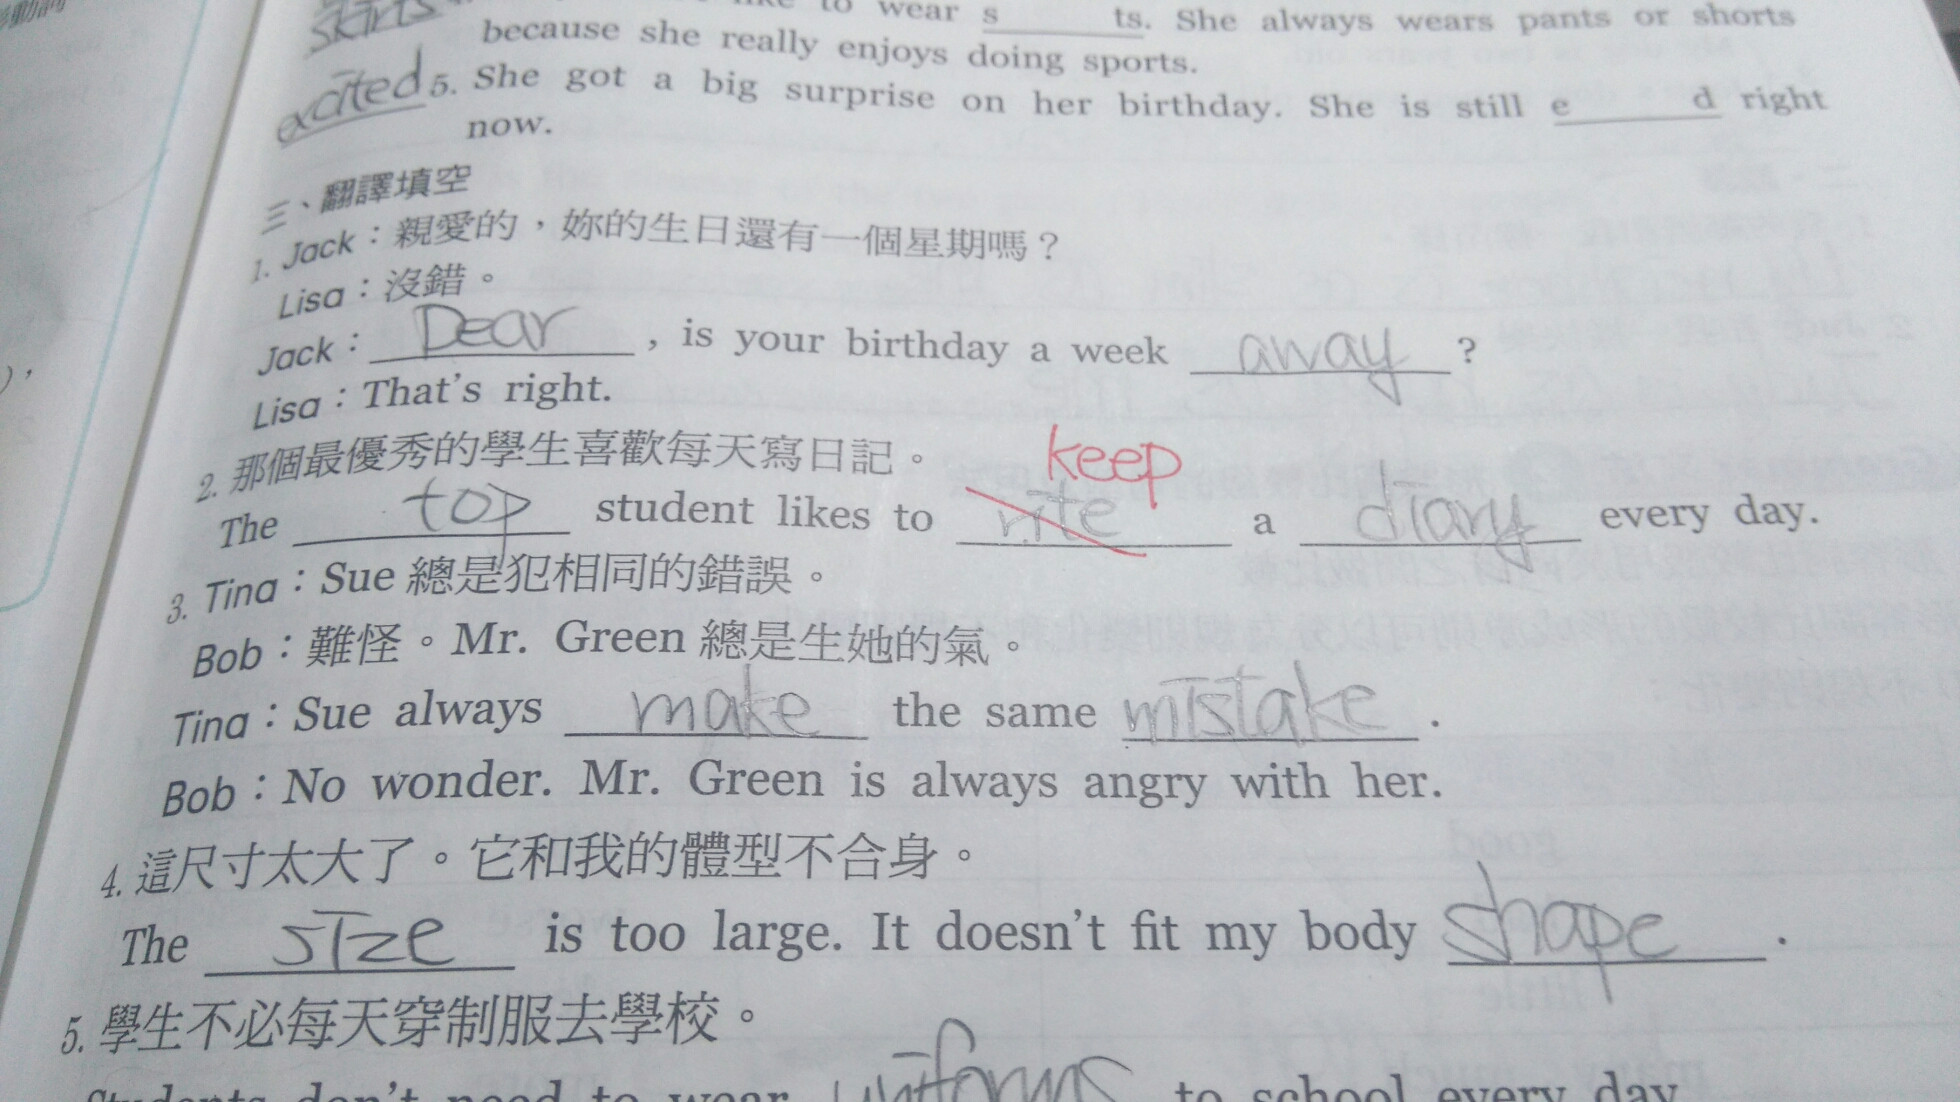 skirts to wear s____ts. She always wears pants or shorts
because she really enjoys doing sports.
excited 5. She got a big surprise on her birthday. She is still e____d right
now.
三、翻譯填空
1. Jack：親愛的，妳的生日還有一個星期嗎？
Lisa：沒錯。
Jack：Dear, is your birthday a week away?
Lisa：That's right.
2. 那個最優秀的學生喜歡每天寫日記。
keep
The top student likes to rite a diary every day.
3. Tina：Sue 總是犯相同的錯誤。
Bob：難怪。Mr. Green 總是生她的氣。
Tina：Sue always make the same mistake.
Bob：No wonder. Mr. Green is always angry with her.
4. 這尺寸太大了。它和我的體型不合身。
The size is too large. It doesn't fit my body shape.
5. 學生不必每天穿制服去學校。
Students don't need to wear uniforms to school every day